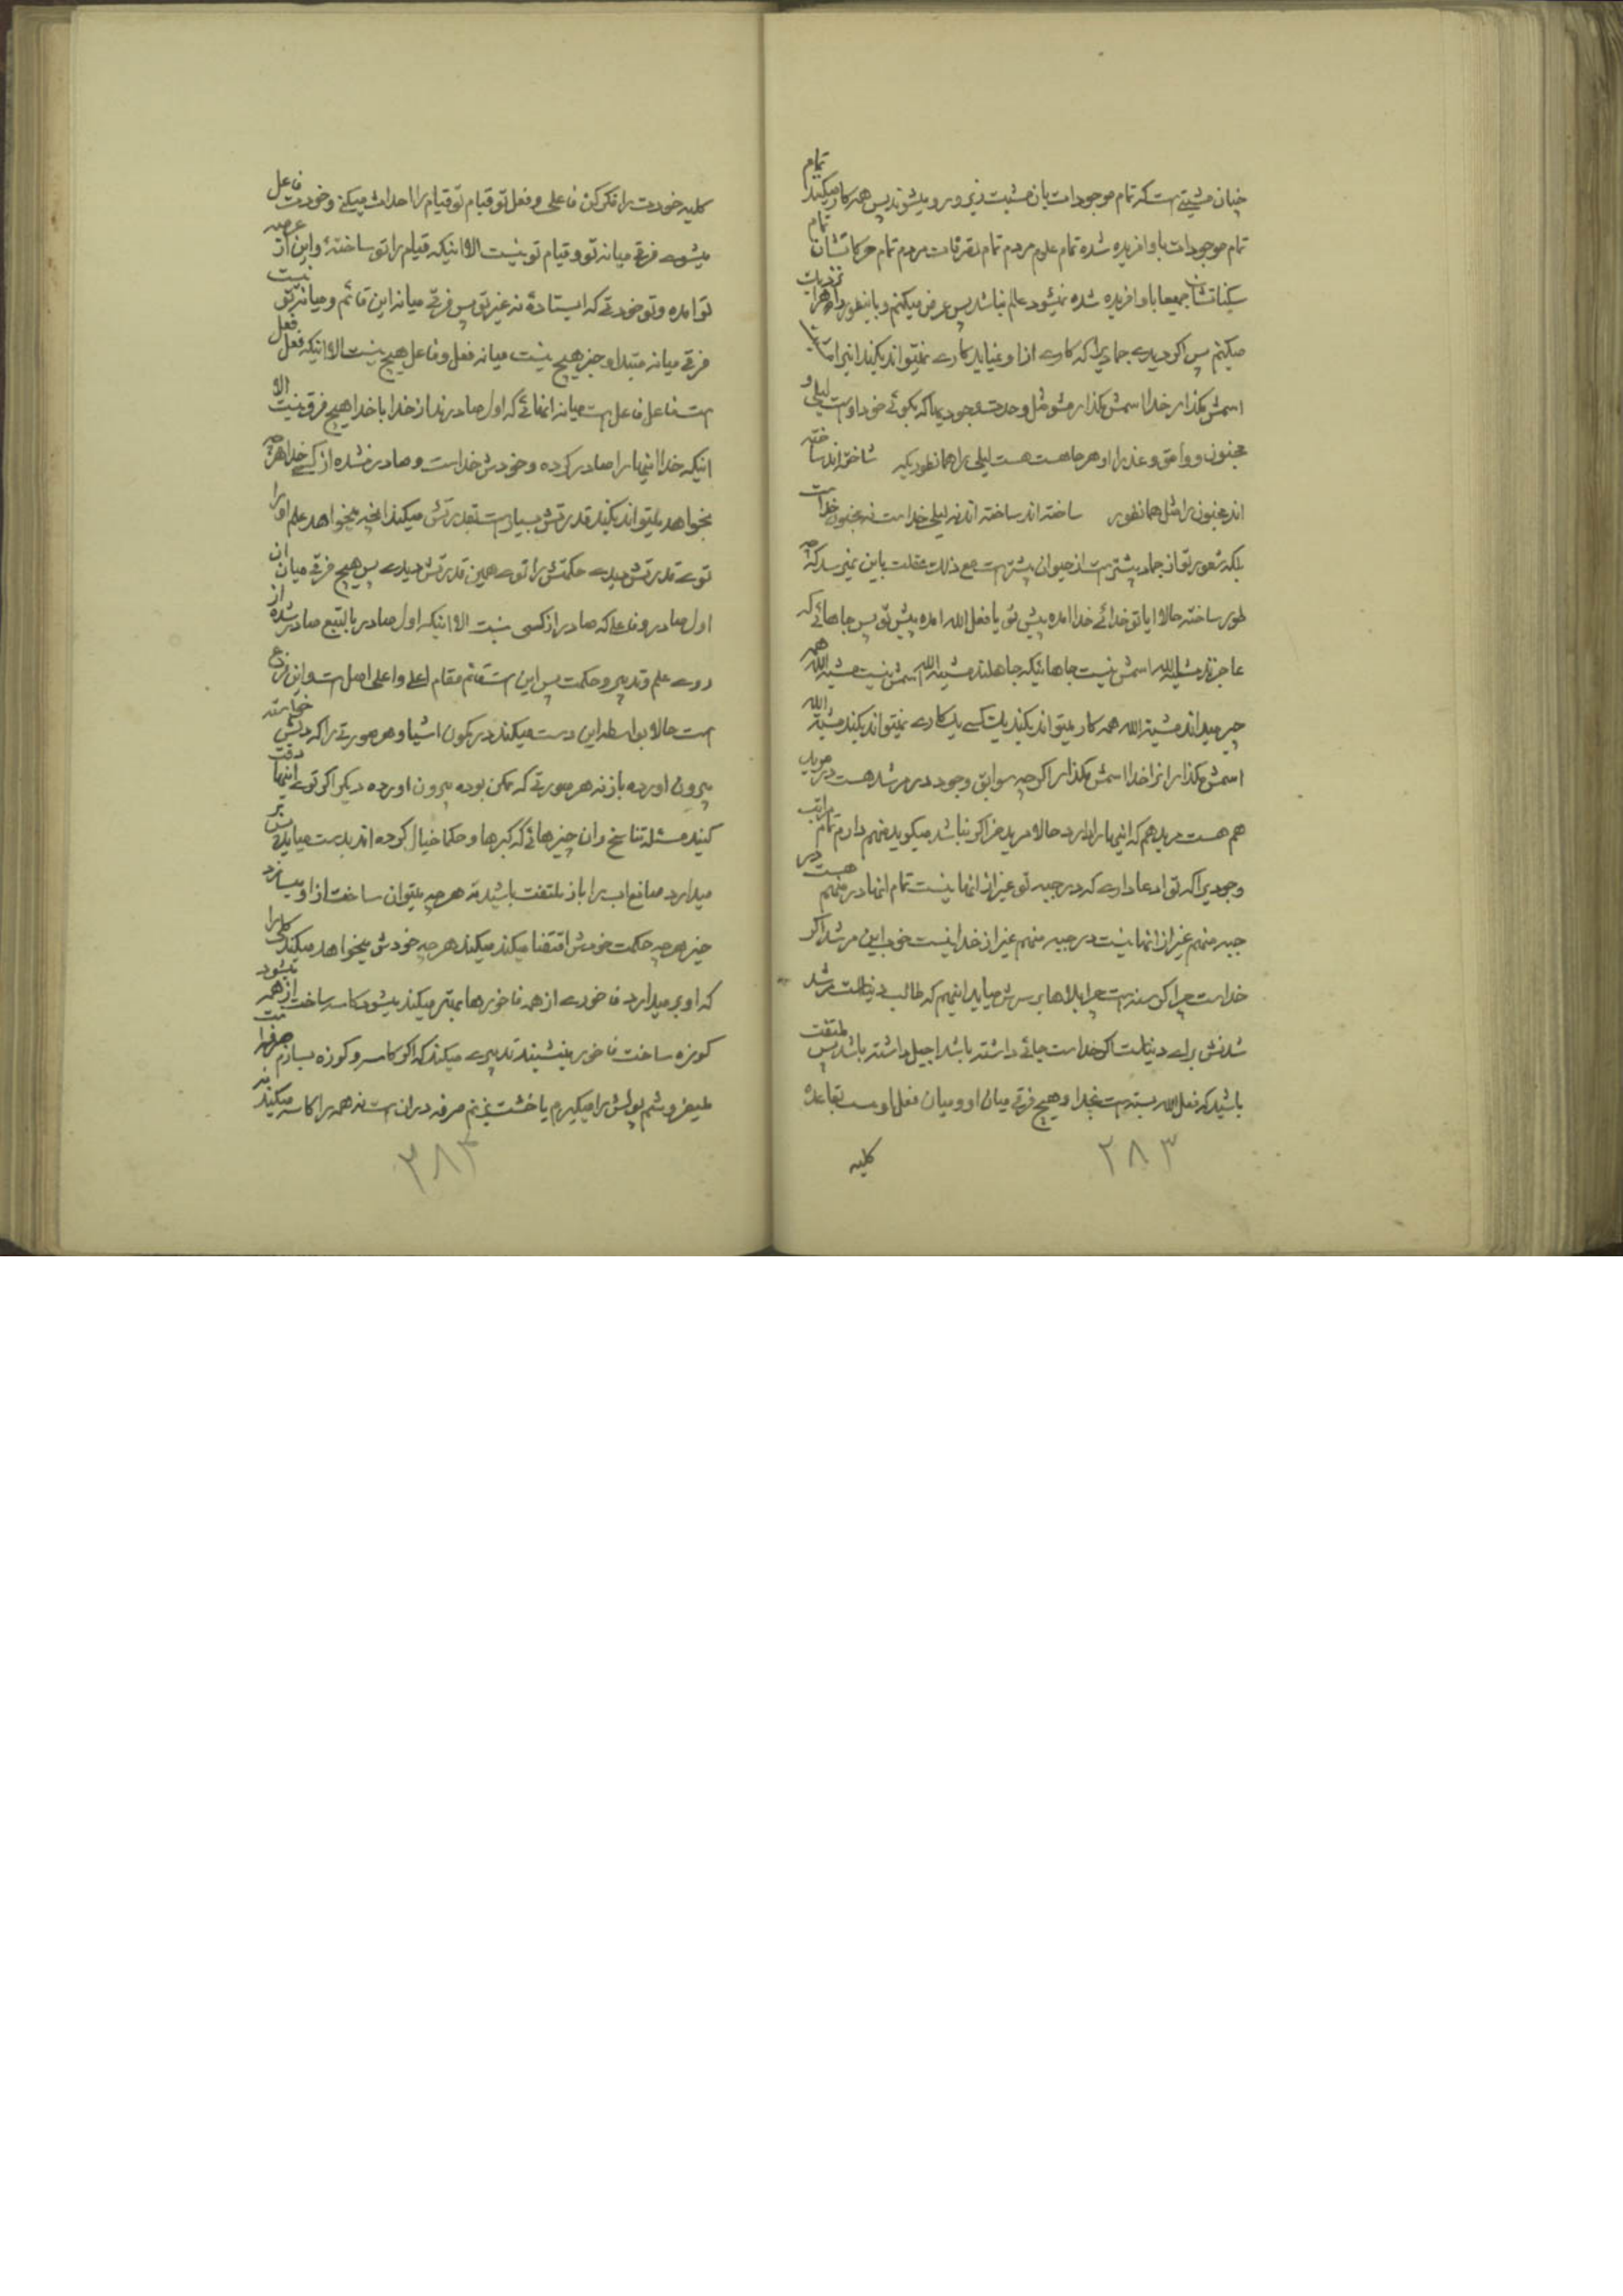 چنان مشیتی است که تمام موجودات بان مشیت زیر و رو میشوند پس همه کار میکند تمام
تمام موجودات باو افریده شده تمام علوم مردم تمام تصرفات مردم تمام حرکاتشان تمام
سکناتشان جمیعا باو افریده شده نمیشود عالم نباشد پس عرض میکنم و باینطور
میکنم پس اگر دیدی جمادیرا که کاری از او نمیاید کاری نمیتواند بکند
اسمش مگذار خدا اسمش مگذار مشو مثل وحدت وجودیها که بگوئی خود اوست لیلی و
مجنون و وامق و عذرا او هر جا هست هست لیلی را همانطور دیگر ساخته اند ساخته
اند مجنون را مثل همانطور ساخته اند ساخته اند نه لیلی خدا است نه مجنون خدا است
بلکه شعور تو از جماد بیشتر است از حیوان بیشتر است مع ذلک عقلت باین نمیرسد که چه
طور ساخته حالا ایا تو خدائی خدا امده پیش تو یا فعل الله امده پیش تو پس جاهائی که
عاجزند مشیة الله اسمش نیست جاهائیکه جاهلند مشیة الله اسمش نیست مشیة الله همه
چیز میداند مشیة الله همه کار میتواند بکند یک کسی یک کاری نمیتواند بکند مشیة الله
اسمش مگذار انرا خدا اسمش مگذار اگر چه سوابق وجود در مرشد هست در مرید
هم هست مرید هم که اینها را دارد حالا مرید خر اگر نباشد میگوید منهم دارم تمام مراتب
وجودیرا که تو ادعا داری که در جبه تو غیر از انها نیست تمام انها در منهم هست در
جبه منهم غیر از انها نیست در جبه منهم غیر از خدا نیست خوب این مرشد اگر
خدا است چرا گرسنه است چرا بلاها بر سرش میاید اینهم که طالب دنیا است مرشد
شدنش برای دنیا است اگر خدا است جائی داشته باشد اجیل داشته باشد پس ملتفت
باشید که فعل الله بسته است بخدا و هیچ فرقی میان او و میان فعل او نیست بقاعده
کلیه
۲۸۳
کلیه خودت را فکر کن فاعلی و فعل تو قیام تو قیام را احداث میکنی و خودت فاعل
میشوی فرقی میانه تو و قیام تو نیست الا اینکه قیام را تو ساختهٔ و این از
تو امده و تو خودتی که ایستادهٔ نه غیر تو پس فرقی میانه این قائم و میانه تو نیست
فرقی میانه مبتدا و خبر هیچ نیست میانه فعل و فاعل هیچ نیست الا اینکه فعل فعل
است فاعل فاعل است میانه انهائی که اول صادرند از خدا با خدا هیچ فرق نیست الا
اینکه خدا اینها را صادر کرده و خودش خدا است و صادر نشده از کسی خدا هر چه
بخواهد میتواند بکند قدرتش بسیار است بقدرتش میکند انچه میخواهد علم او را
توی قدرتش دیدی حکمتش را توی همین قدرتش دیدی پس هیچ فرقی میان ان
اول صادر و فاعلی که صادر از کسی نیست الا اینکه اول صادر بالتبع صادر شده از
روی علم و تدبیر و حکمت پس این است قائم مقام اعلی و اعلی اصل است و این فرع
است حالا بواسطه این دست میکند در کمون اشیا و هر صورتی را که دلش خواسته
بیرون اورده باز نه هر صورتی که ممکن بوده بیرون اورده دیگر اگر توی اینها دقت
کنید مسئله تناسخ و ان چیزهائی که گبرها و حکما خیال کرده اند بدست میاید
میدارد صانع اب را باز ملتفت باشید نه هر چه میتوان ساخت از او میسازد
خیر هر چه حکمت خودش اقتضا میکند میکند هر چه خودش میخواهد میکند
که او بر میدارد فاخوری از همه فاخورها بهتر میکند میشود کاسه ساخت از همه میشود
کوزه ساخت فاخور مینشیند تدبیری میکند که اگر کاسه و کوزه بسازم
میفروشم پولش را میگیرم یا خشت بزنم صرفه در ان است نه همه را کاسه میکند نه
۲۸۴